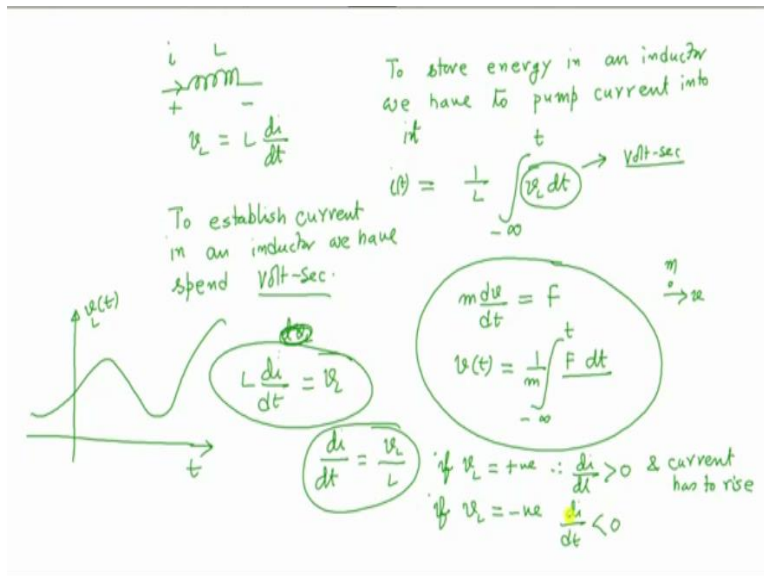 i L
+ -
v_L = L di/dt
To store energy in an inductor
we have to pump current into
it
i(t) = 1/L ∫_{-∞}^{t} v_L dt → Volt-sec
To establish current
in an inductor we have
spend Volt-Sec.
v_L(t)
t
L di/dt = v_L
di/dt = v_L/L
m dv/dt = F
v(t) = 1/m ∫_{-∞}^{t} F dt
m
→ v
if v_L = +ve ∴ di/dt > 0 & current
has to rise
if v_L = -ve di/dt < 0